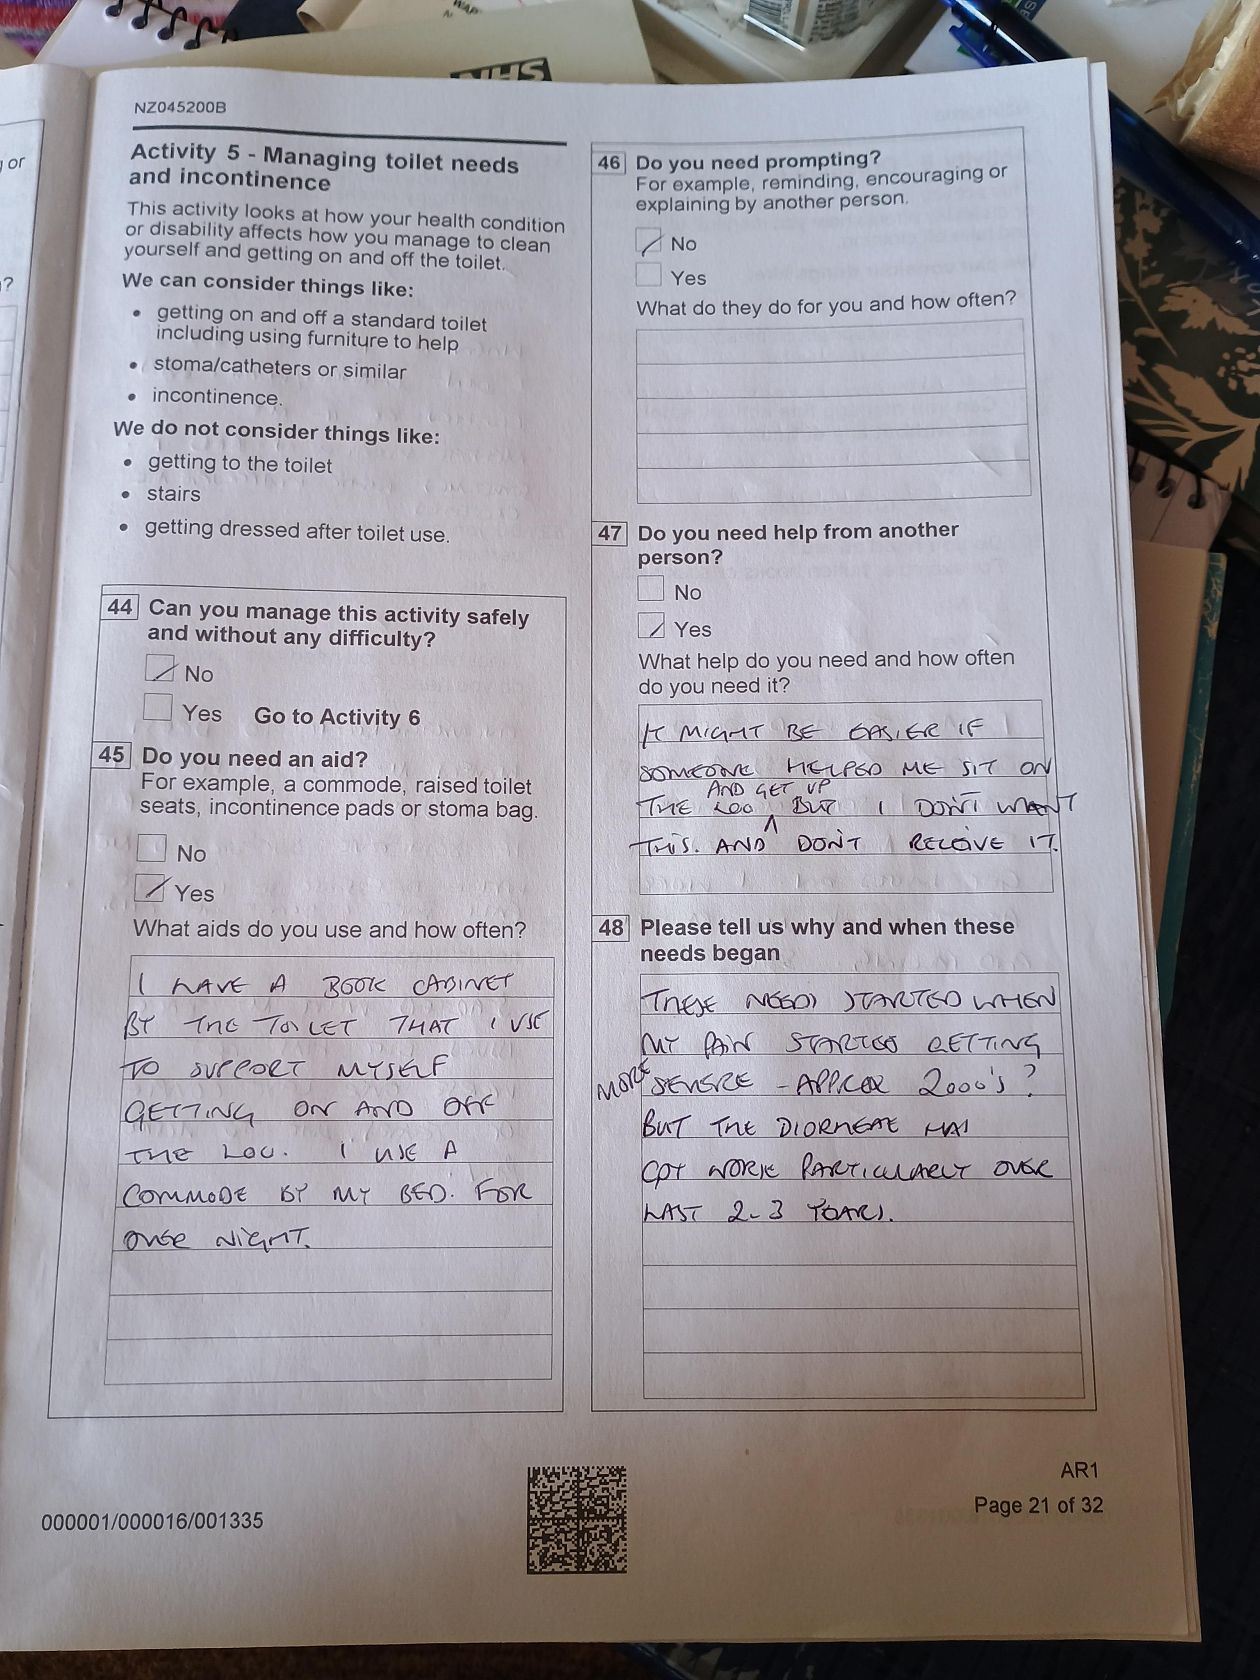 NHS
NZ045200B
Activity 5 - Managing toilet needs
and incontinence
This activity looks at how your health condition
or disability affects how you manage to clean
yourself and getting on and off the toilet.
We can consider things like:
• getting on and off a standard toilet
including using furniture to help
• stoma/catheters or similar
• incontinence.
We do not consider things like:
• getting to the toilet
• stairs
• getting dressed after toilet use.
44 Can you manage this activity safely
and without any difficulty?
No
Yes Go to Activity 6
45 Do you need an aid?
For example, a commode, raised toilet
seats, incontinence pads or stoma bag.
No
Yes
What aids do you use and how often?
I HAVE A BOOK CABINET
BY THE TOILET THAT I USE
TO SUPPORT MYSELF
GETTING ON AND OFF
THE LOO. I USE A
COMMODE BY MY BED. FOR
OVER NIGHT.
46 Do you need prompting?
For example, reminding, encouraging or
explaining by another person.
No
Yes
What do they do for you and how often?
47 Do you need help from another
person?
No
Yes
What help do you need and how often
do you need it?
IT MIGHT BE EASIER IF
SOMEONE HELPED ME SIT ON
AND GET UP
THE LOO BUT I DON'T WANT
THIS. AND DON'T RECEIVE IT.
48 Please tell us why and when these
needs began
THESE NEEDS STARTED WHEN
MY PAIN STARTED GETTING
MORE SEVERE - APPROX 2000'S?
BUT THE DIORHEAE HAS
GOT WORSE PARTICULARLY OVER
LAST 2-3 YEARS.
000001/000016/001335
AR1
Page 21 of 32